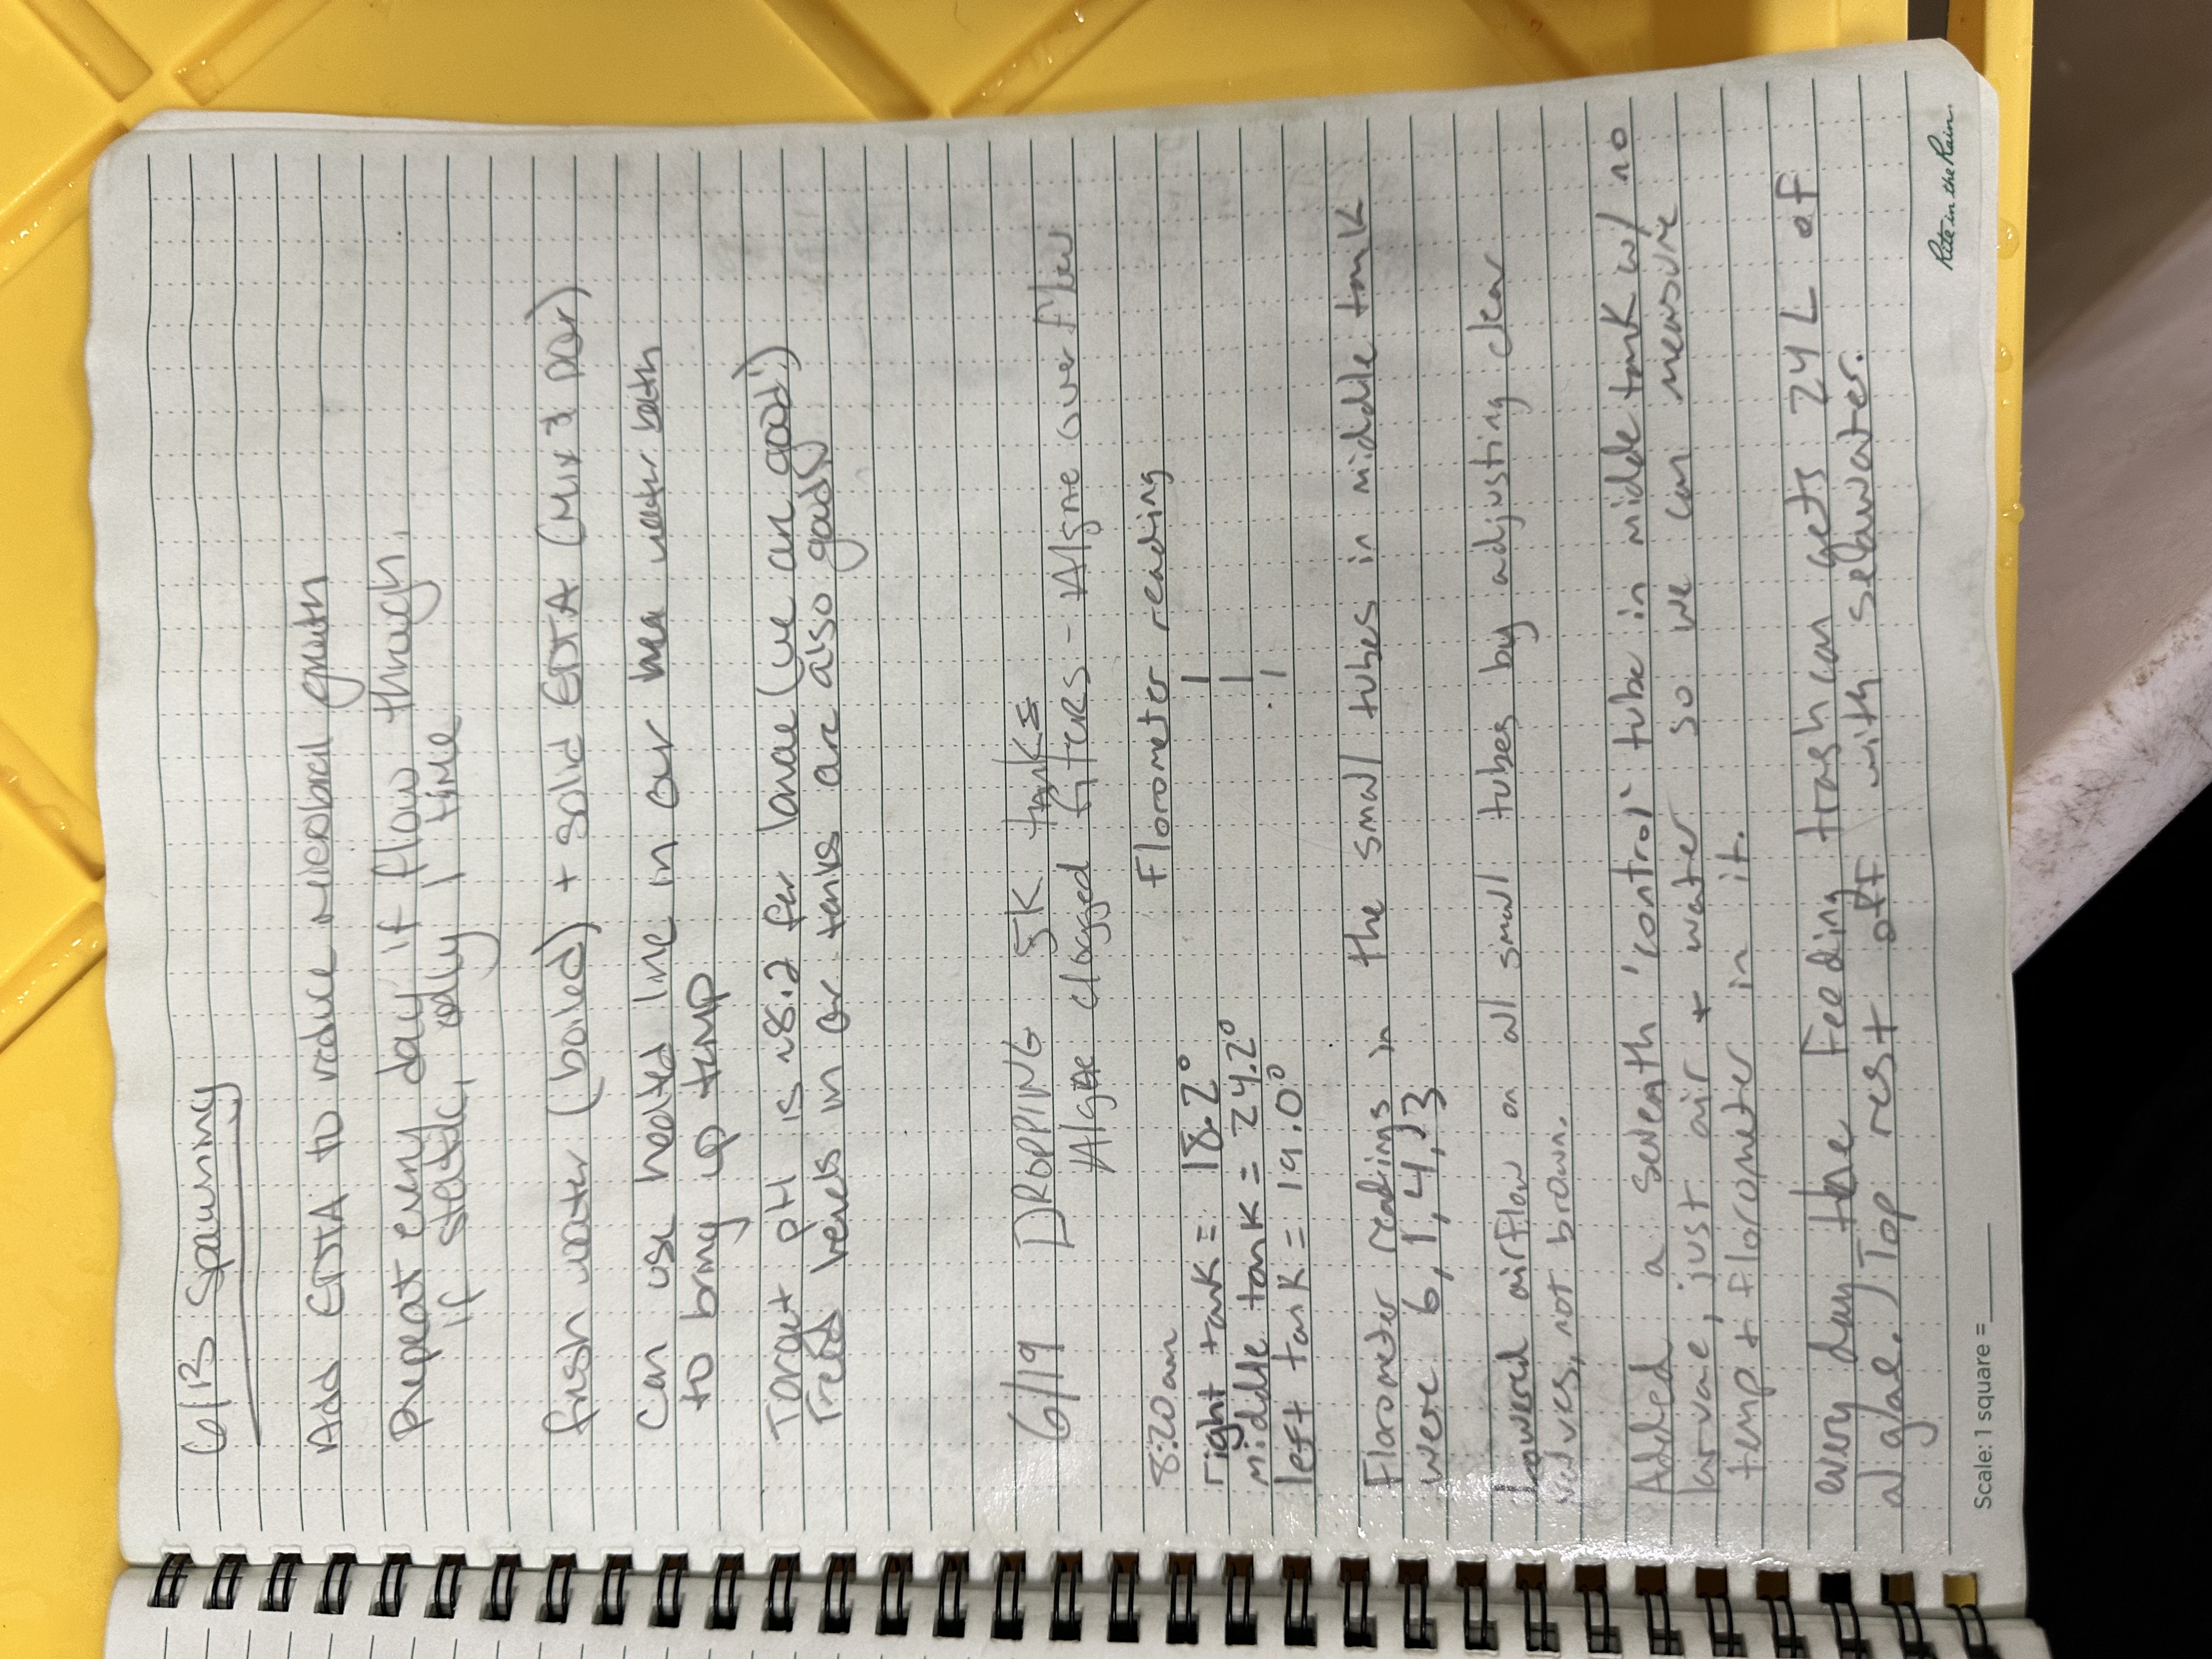 6/13 Spawning
Add EDTA to reduce microbail growth
Repeat every day if flow through,
if static, only 1 time
fresh water (boiled) + solid EDTA (Mix & Pour)
Can use heated line in our water bath
to bring up temp
Target pH is ~8.2 for larvae (we are good!)
Feed levels in our tanks are also good
6/19 DROPPING 5K tanks
Algae clogged filters - Algae overflow
8:20am Florometer reading
right tank = 18.2° 1
middle tank = 24.2° 1
left tank = 19.0° 1
Florometer readings in the small tubes in middle tank
were 6, 1, 4, 3
Lowered airflow on all small tubes by adjusting clear
valves, not brown.
Added a seventh 'control' tube in middle tank w/ no
larvae, just air + water so we can measure
temp + florometer in it.
every day the Feeding trashcan gets 24 L of
algae. Top rest off with seawater.
Rite in the Rain.
Scale: 1 square =